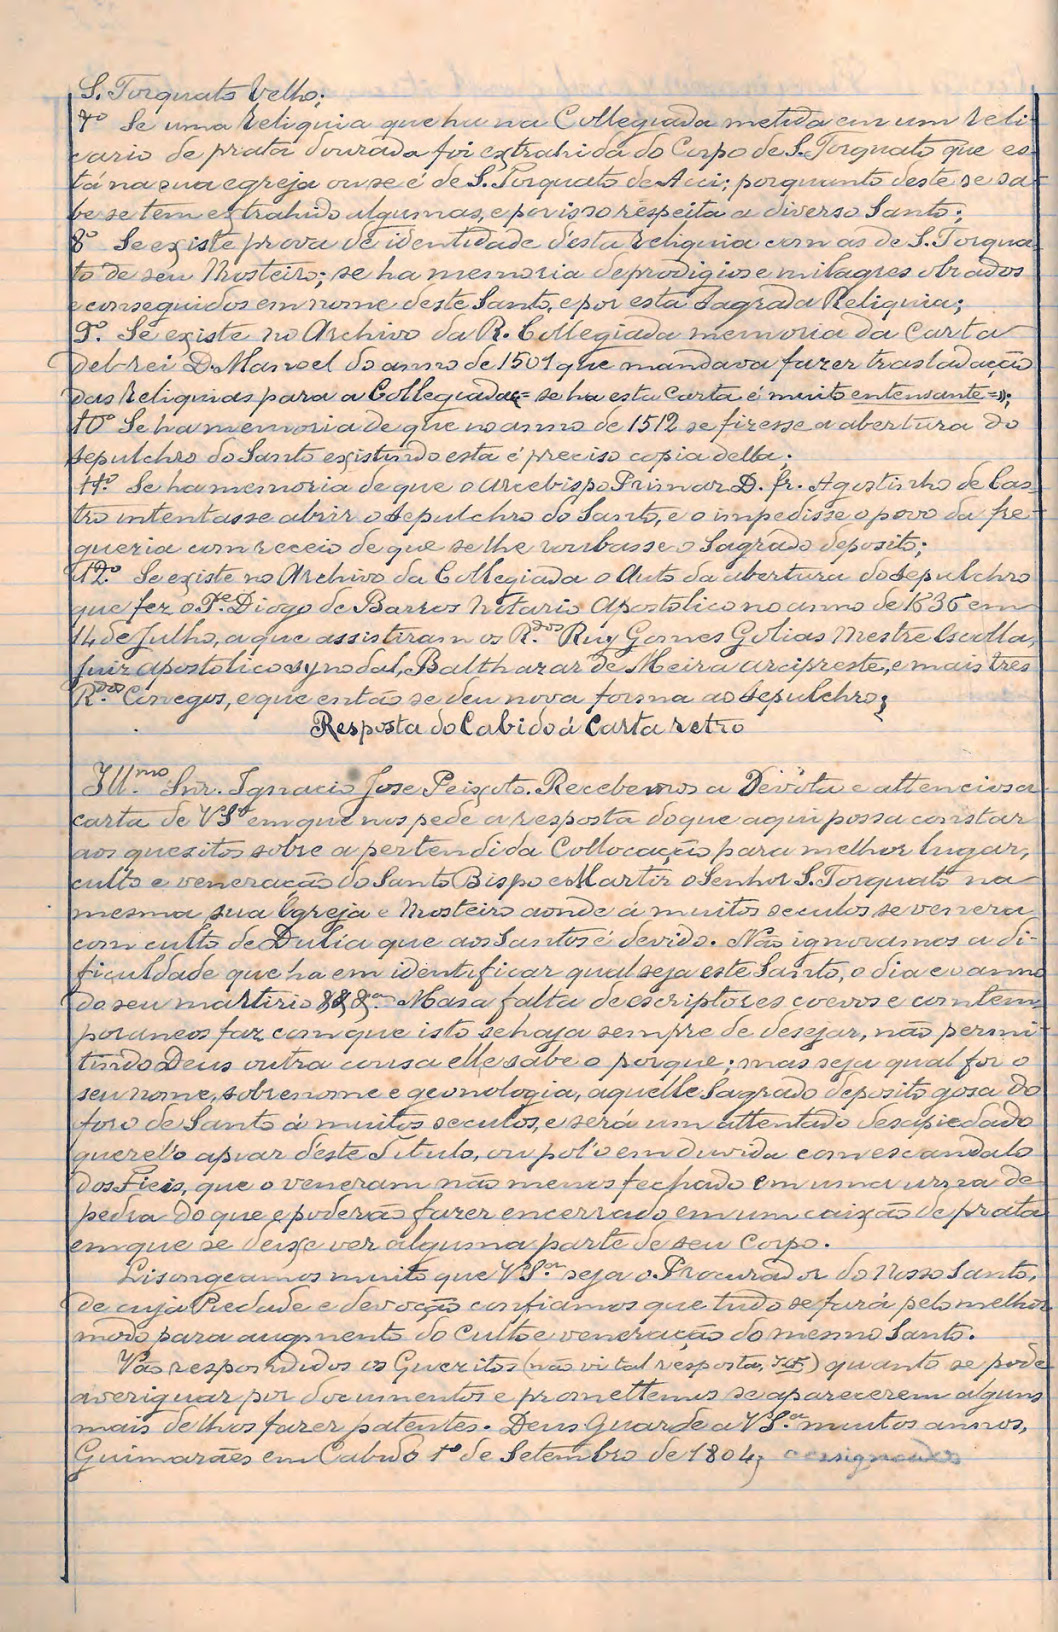 S. Torquato Velho;
7º Se uma Reliquia que ha na Collegiada metida em um reli-
cario de prata dourada foi extrahida do Corpo de S. Torquato que es-
tá na sua egreja ou se é de S. Torquato de Acci; porquanto deste se sa-
be se tem extrahido algumas, e por isso respeita a diverso Santo;
8º Se existe prova de identidade d'esta reliquia com as de S. Torqua-
to de seu Mosteiro; se ha memoria de prodigios e milagres obrados
e conseguidos em nome deste Santo, e por esta Sagrada Reliquia;
9º. Se existe no Archivo da R. Collegiada memoria da Carta
del-rei D. Manoel do anno de 1501 que mandava fazer trasladação
das Reliquias para a Collegiada (= se ha esta Carta é muito entensante =);
10º Se ha memoria de que no anno de 1512 se fizesse a abertura do
sepulchro do Santo existindo esta é preciso copia della;
11º. Se ha memoria de que o Arcebispo Primaz D. fr. Agostinho de Cas-
tro intentasse abrir o sepulchro do Santo, e o impedisse o povo da fre-
gueria com receio de que se lhe roubasse o Sagrado deposito;
12º Se existe no Archivo da Collegiada o Auto da abertura do sepulchro
que fez o Pe. Diogo de Barros Notario Apostolico no anno de 1636 em
14 de Julho, a que assistiram os R.dos Ruy Gomes Golias Mestre Escolla,
Juiz apostolico synodal, Balthazar de Meira arcipreste, e mais tres
R.dos Conegos, e que então se deu nova forma ao sepulchro;
Resposta do Cabido á Carta retro
Ill.mo Snr. Ignacio Jose Peixoto. Recebemos a Devota e attenciosa
carta de VSª em que nos pede a resposta do que aqui possa constar
aos quesitos sobre a pertendida Collocação para melhor lugar,
culto e veneração do Santo Bispo e Martir o Senhor S. Torquato na
mesma sua Egreja e Mosteiro aonde á muitos seculos se venera
com culto de Dulia que aos Santos é devido. Não ignoramos a di-
ficuldade que ha em identificar qual seja este Santo, o dia e o anno
do seu martirio &&&ª Mas a falta de escriptores coevos e contem-
poraneos faz com que isto se haja sempre de desejar, não permi-
tindo Deus outra cousa elle sabe o porque; mas seja qual for o
seu nome, sobrenome e geonologia, aquelle Sagrado deposito gosa do
foro de Santo á muitos seculos, e será um attentado desapiedado
querel'o apear d'este Titulo, ou pol'o em duvida com escandalo
dos Fieis, que o veneram não menos fechado em uma urna de
pedra do que o poderão fazer encerrado em um caixão de prata
em que se deixe ver alguma parte de seu Corpo.
Lisongeamos muito que VS.ª seja o Procurador do Nosso Santo,
de cuja Piedade e devoção confiamos que tudo se fará pelo melhor
modo para augmento do Culto e veneração do mesmo Santo.
Vão respondidos os Quezitos (não vi tal resposta,) quanto se pode
averiguar por documentos e promettemos se apparecerem alguns
mais de lhos fazer patentes. Deus Guarde a VS.ª muitos annos,
Guimarães em Cabido 1º de Setembro de 1804; assignados